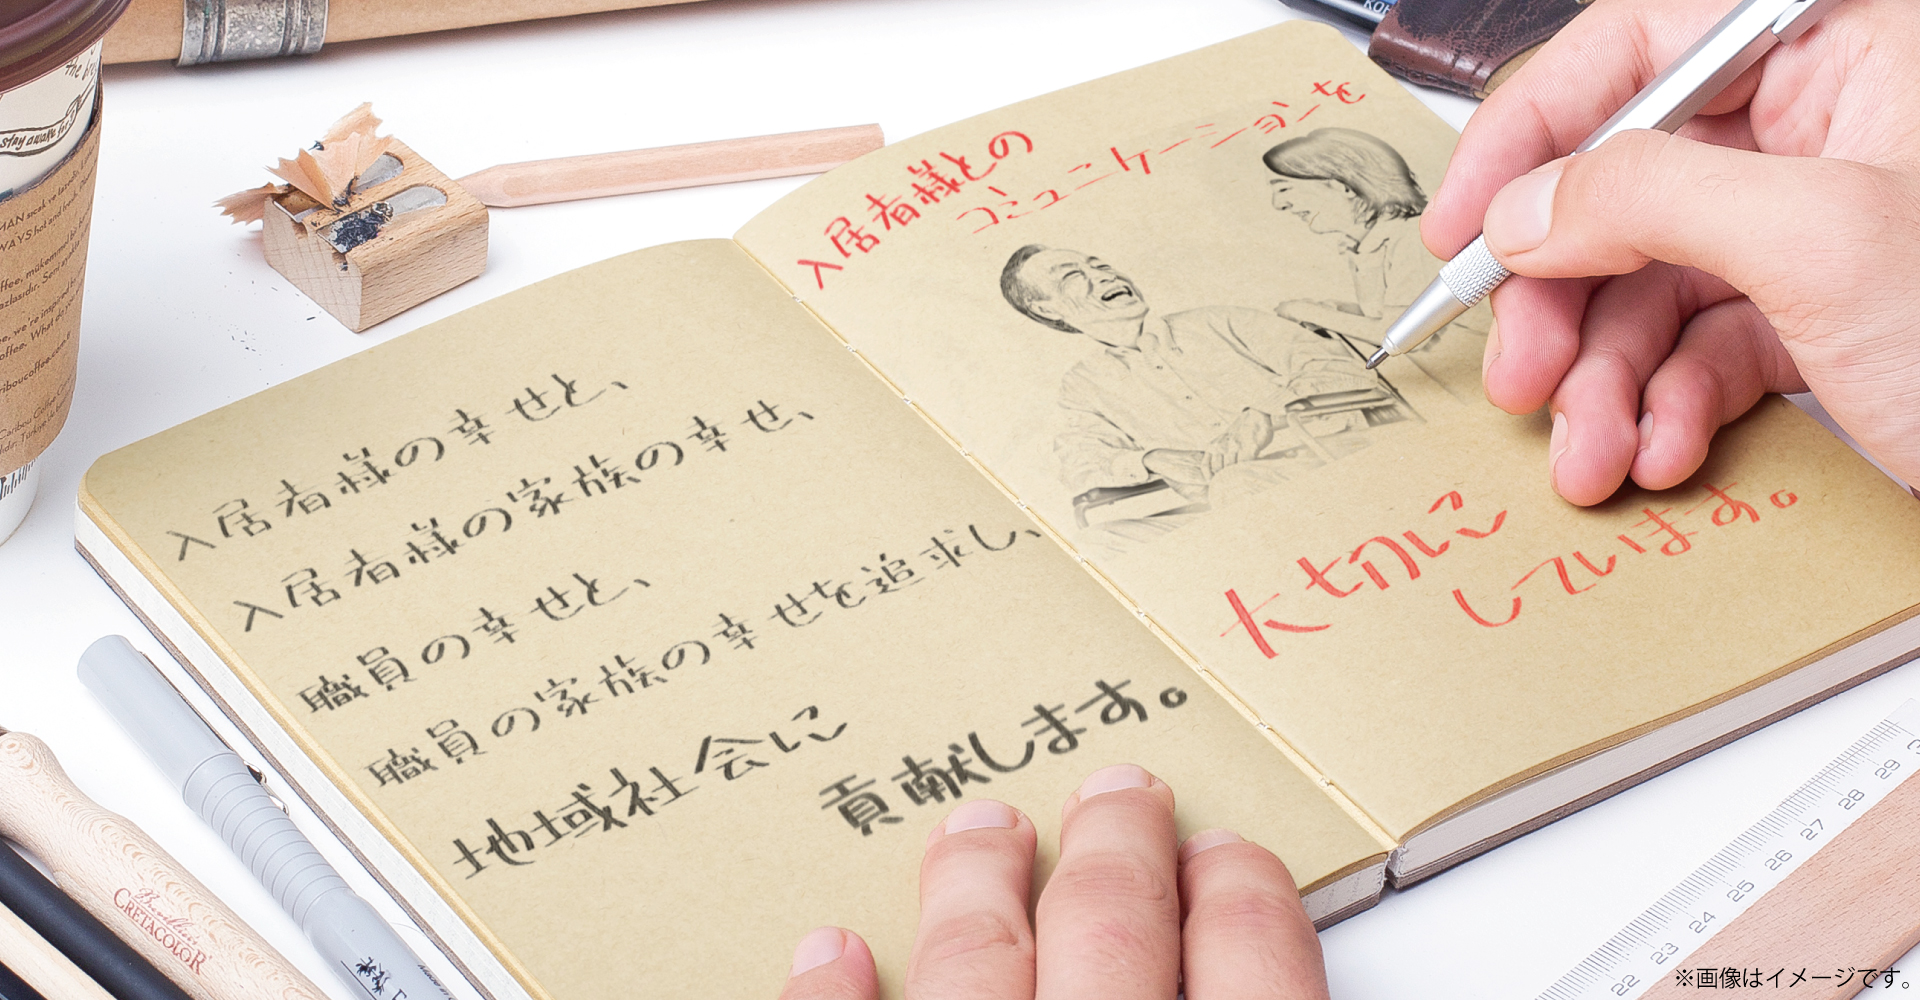 入居者様の幸せと、
入居者様の家族の幸せ、
職員の幸せと、
職員の家族の幸せを追求し、
地域社会に
貢献します。
入居者様との
コミュニケーションを
大切に
しています。
the bre
stay awake for
CRETACOLOR
22 23 24 25 26 27 28 29
※画像はイメージです。